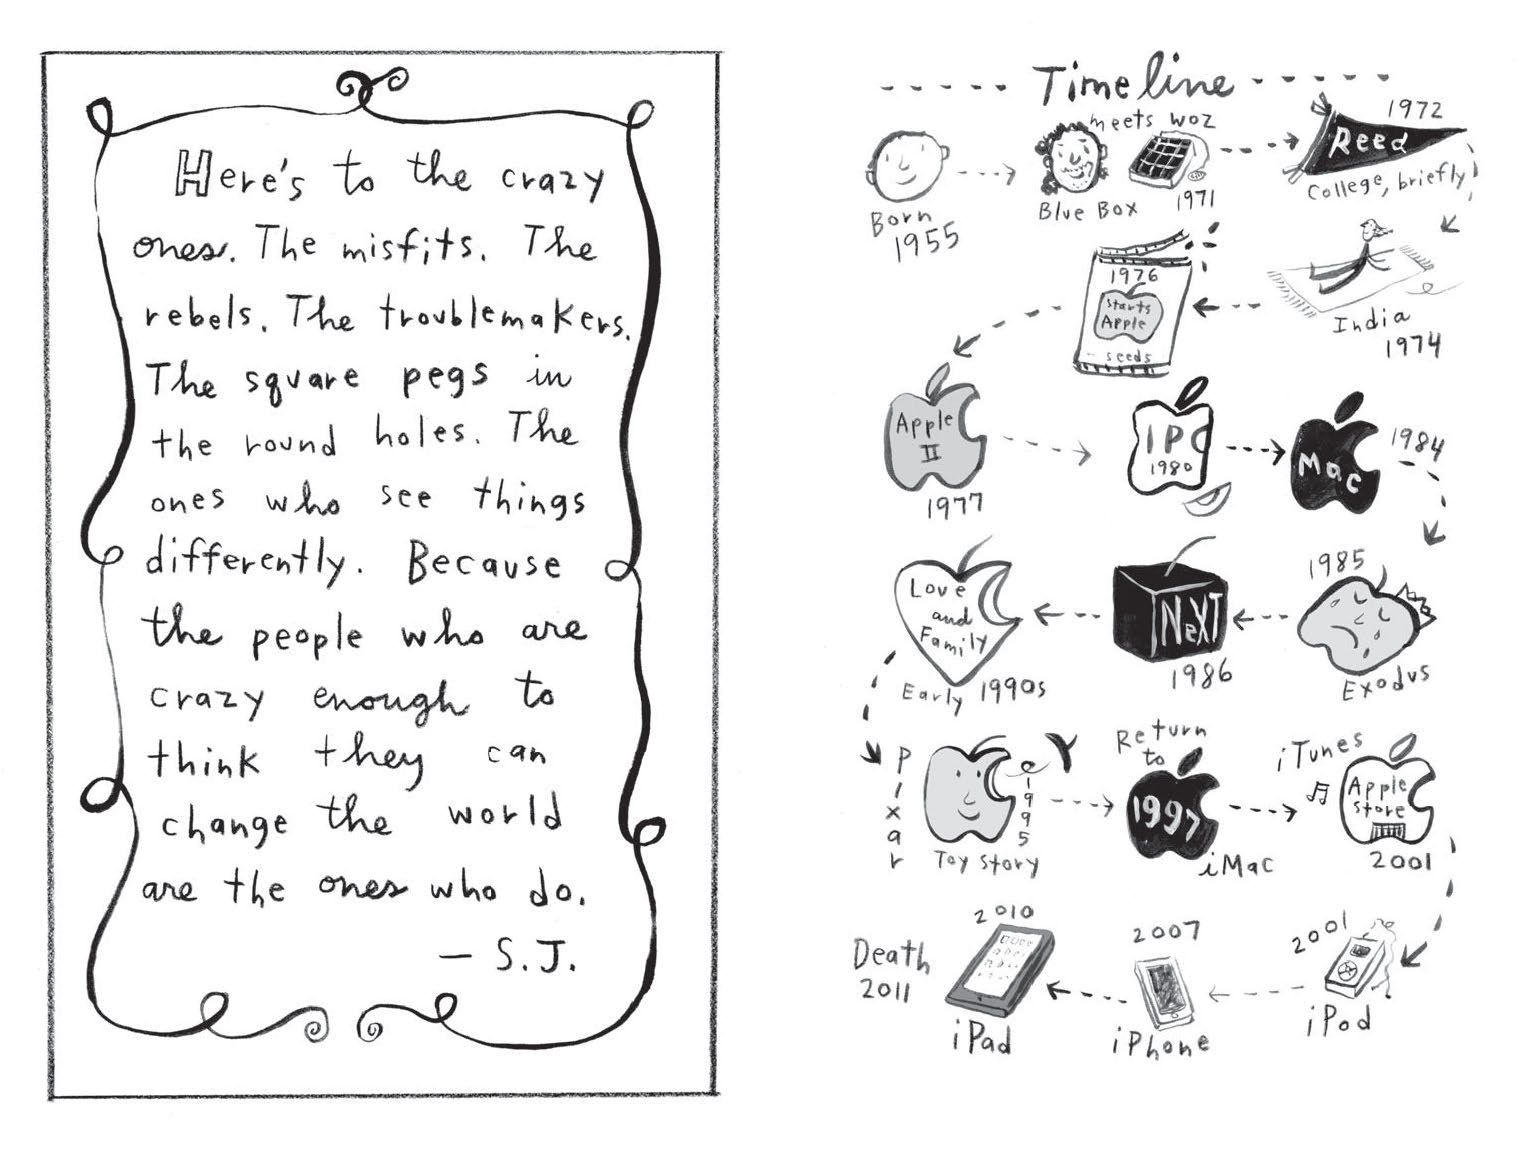 Here's to the crazy
ones. The misfits. The
rebels. The troublemakers.
The square pegs in
the round holes. The
ones who see things
differently. Because
the people who are
crazy enough to
think they can
change the world
are the ones who do.
— S.J.
Timeline
Born
1955
meets Woz
Blue Box
1971
1972
Reed
College, briefly
India
1974
1976
Starts
Apple
seeds
Apple
II
1977
IPO
1980
Mac
1984
1985
Exodus
NeXT
1986
Love
and
Family
Early 1990s
Pixar
1995
Toy Story
Return
to
1997
iMac
iTunes
Apple
Store
2001
2001
iPod
2007
iPhone
2010
iPad
Death
2011